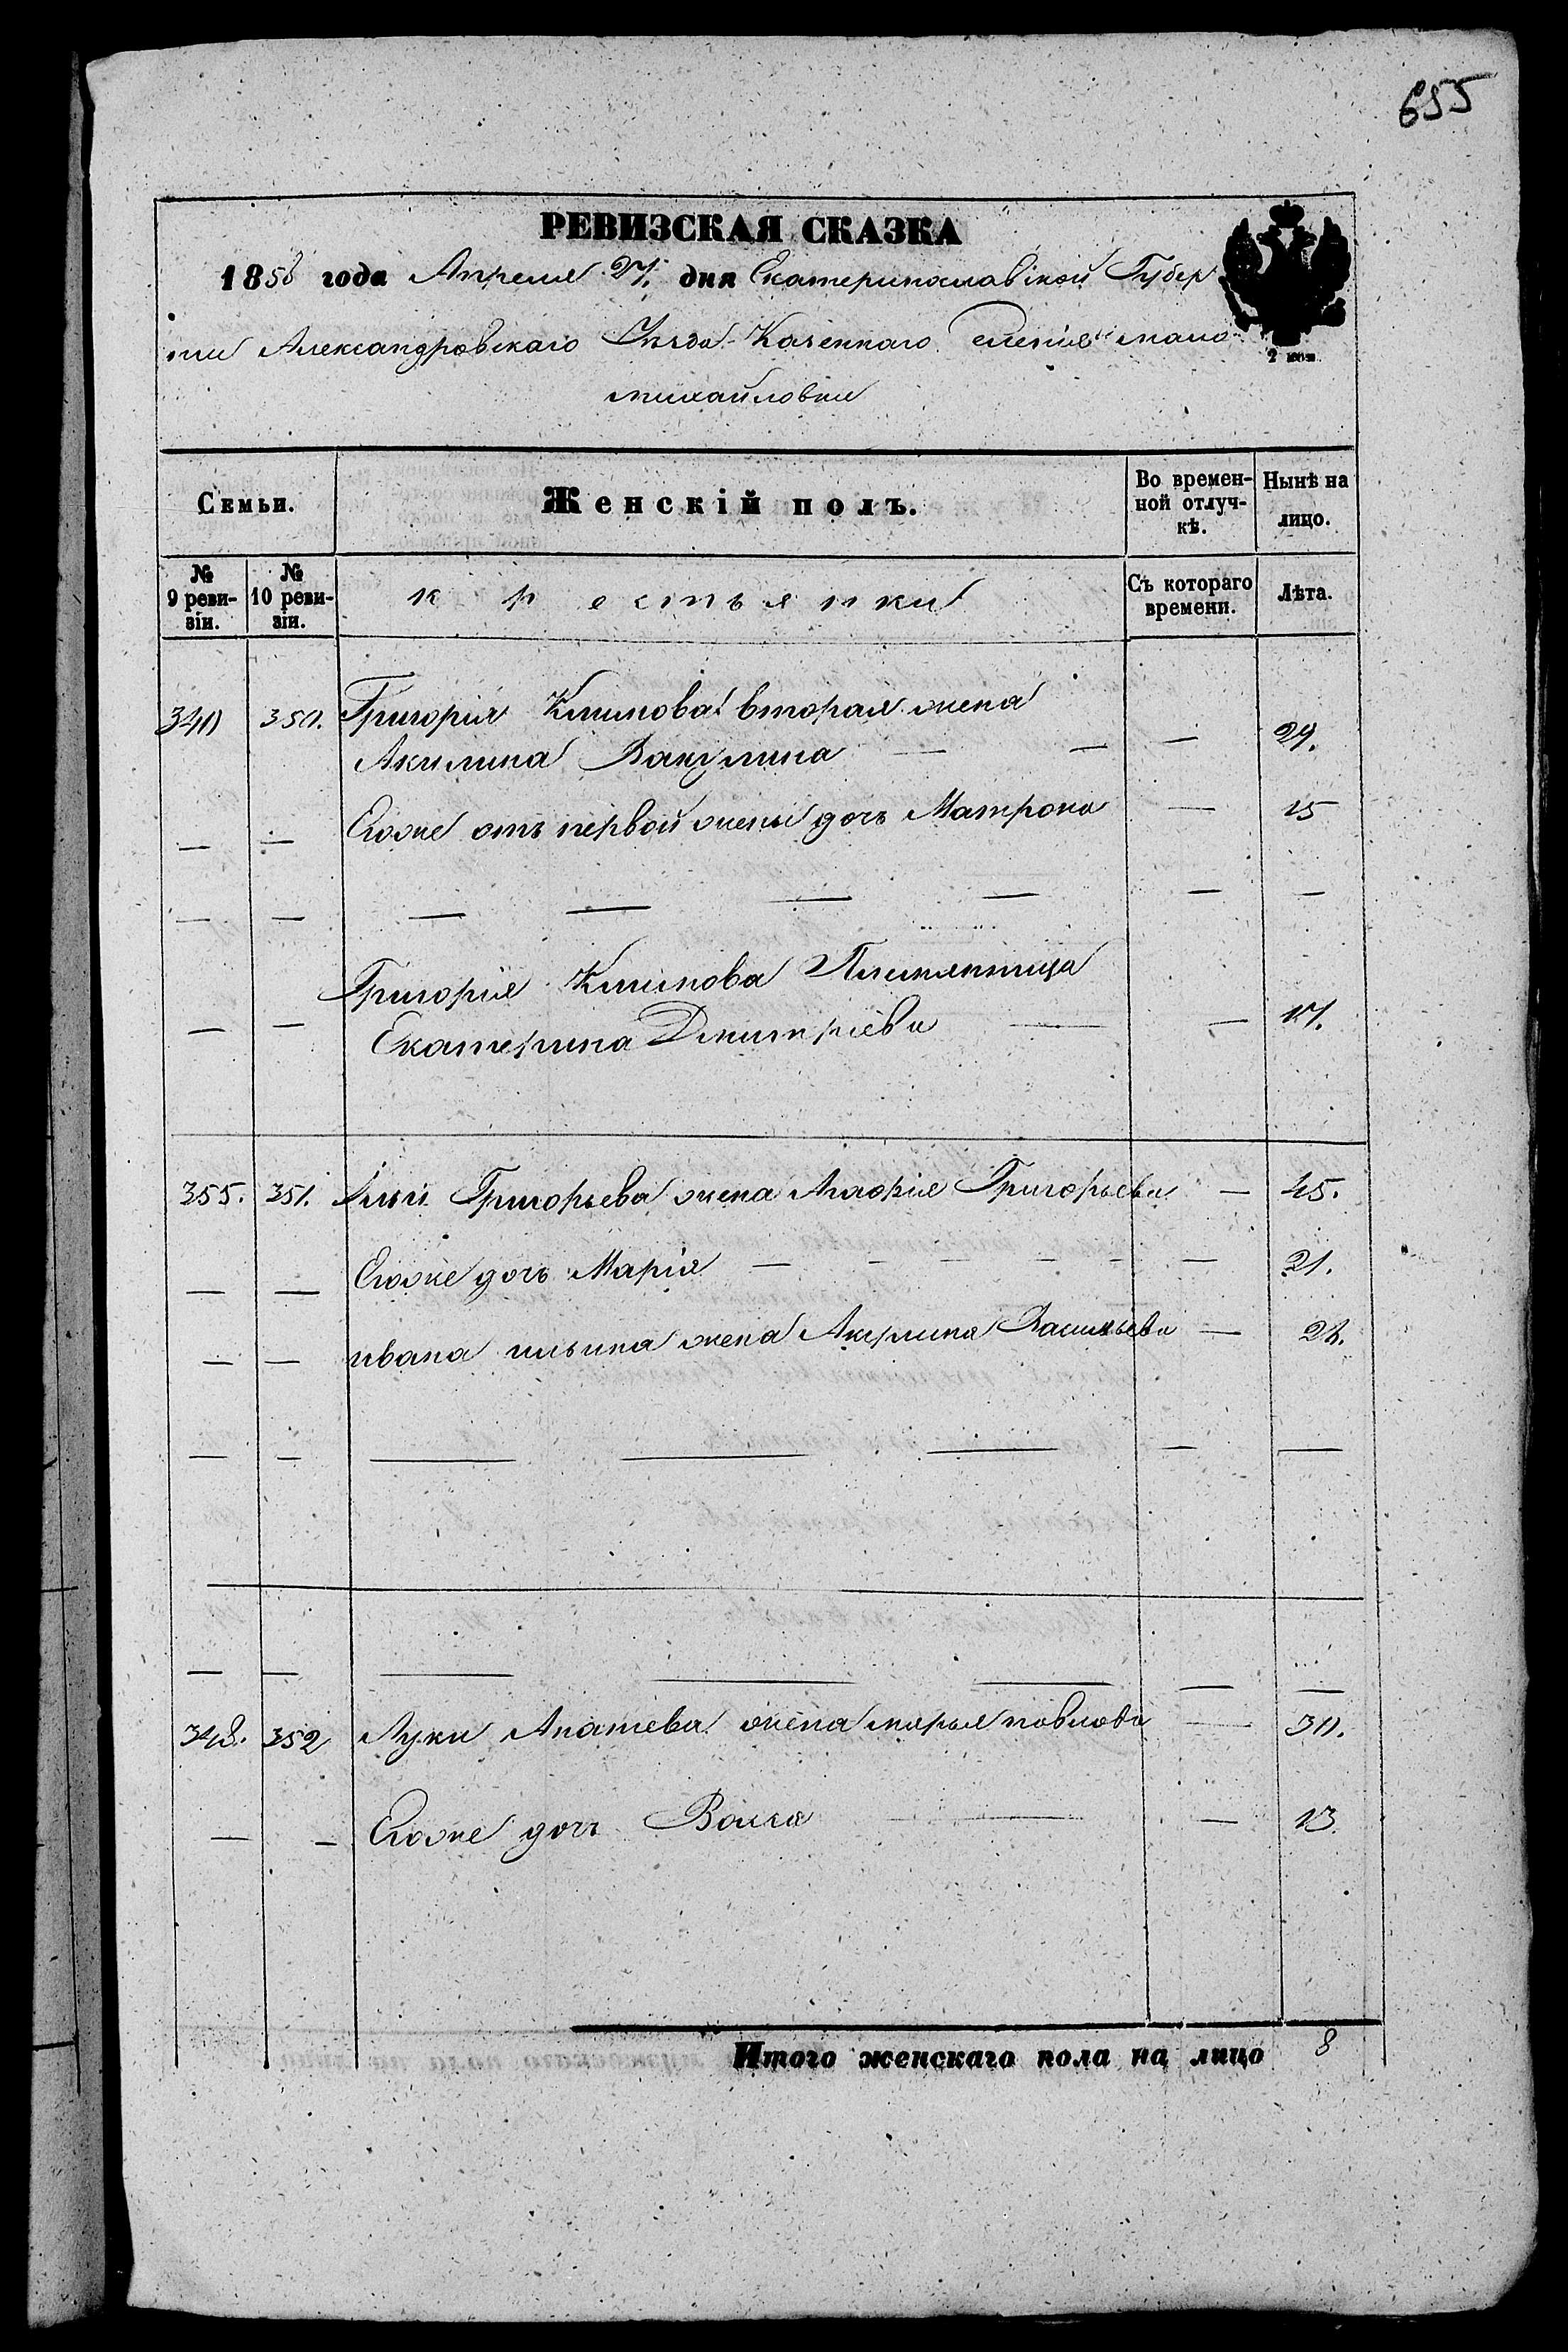 655
РЕВИЗСКАЯ СКАЗКА
1858 года Апреля 27. дня Екатеринославской Губер
нии Александровскаго Уезда Казеннаго селения мало
михайловки
Семьи.
Женскій полъ.
Во времен-
ной отлуч-
кѣ.
Нынѣ на
лицо.
№
9 реви-
зіи.
№
10 реви-
зіи.
крестьянки
Съ котораго
времени.
Лѣта.
340 350. Григорія Климова вторая жена
Акилина Вакулина — — — 29.
— — Егоже отъ первой жены дочь Матрона — 15
— — — — — — — —
Григорія Климова Племянница
— — Екатерина Дмитріева — — 17.
355. 351. Ильи Григорьева жена Агафія Григорьева — 45.
— — Егоже дочь Марія — — — — — — 21.
— — ивана ильина жена Акулина Васильева — 28.
— — — — — — —
— — — — — — —
348. 352 Луки жена марья павлова — 30.
— — Егоже дочь — — 13.
Итого женскаго пола на лицо 8